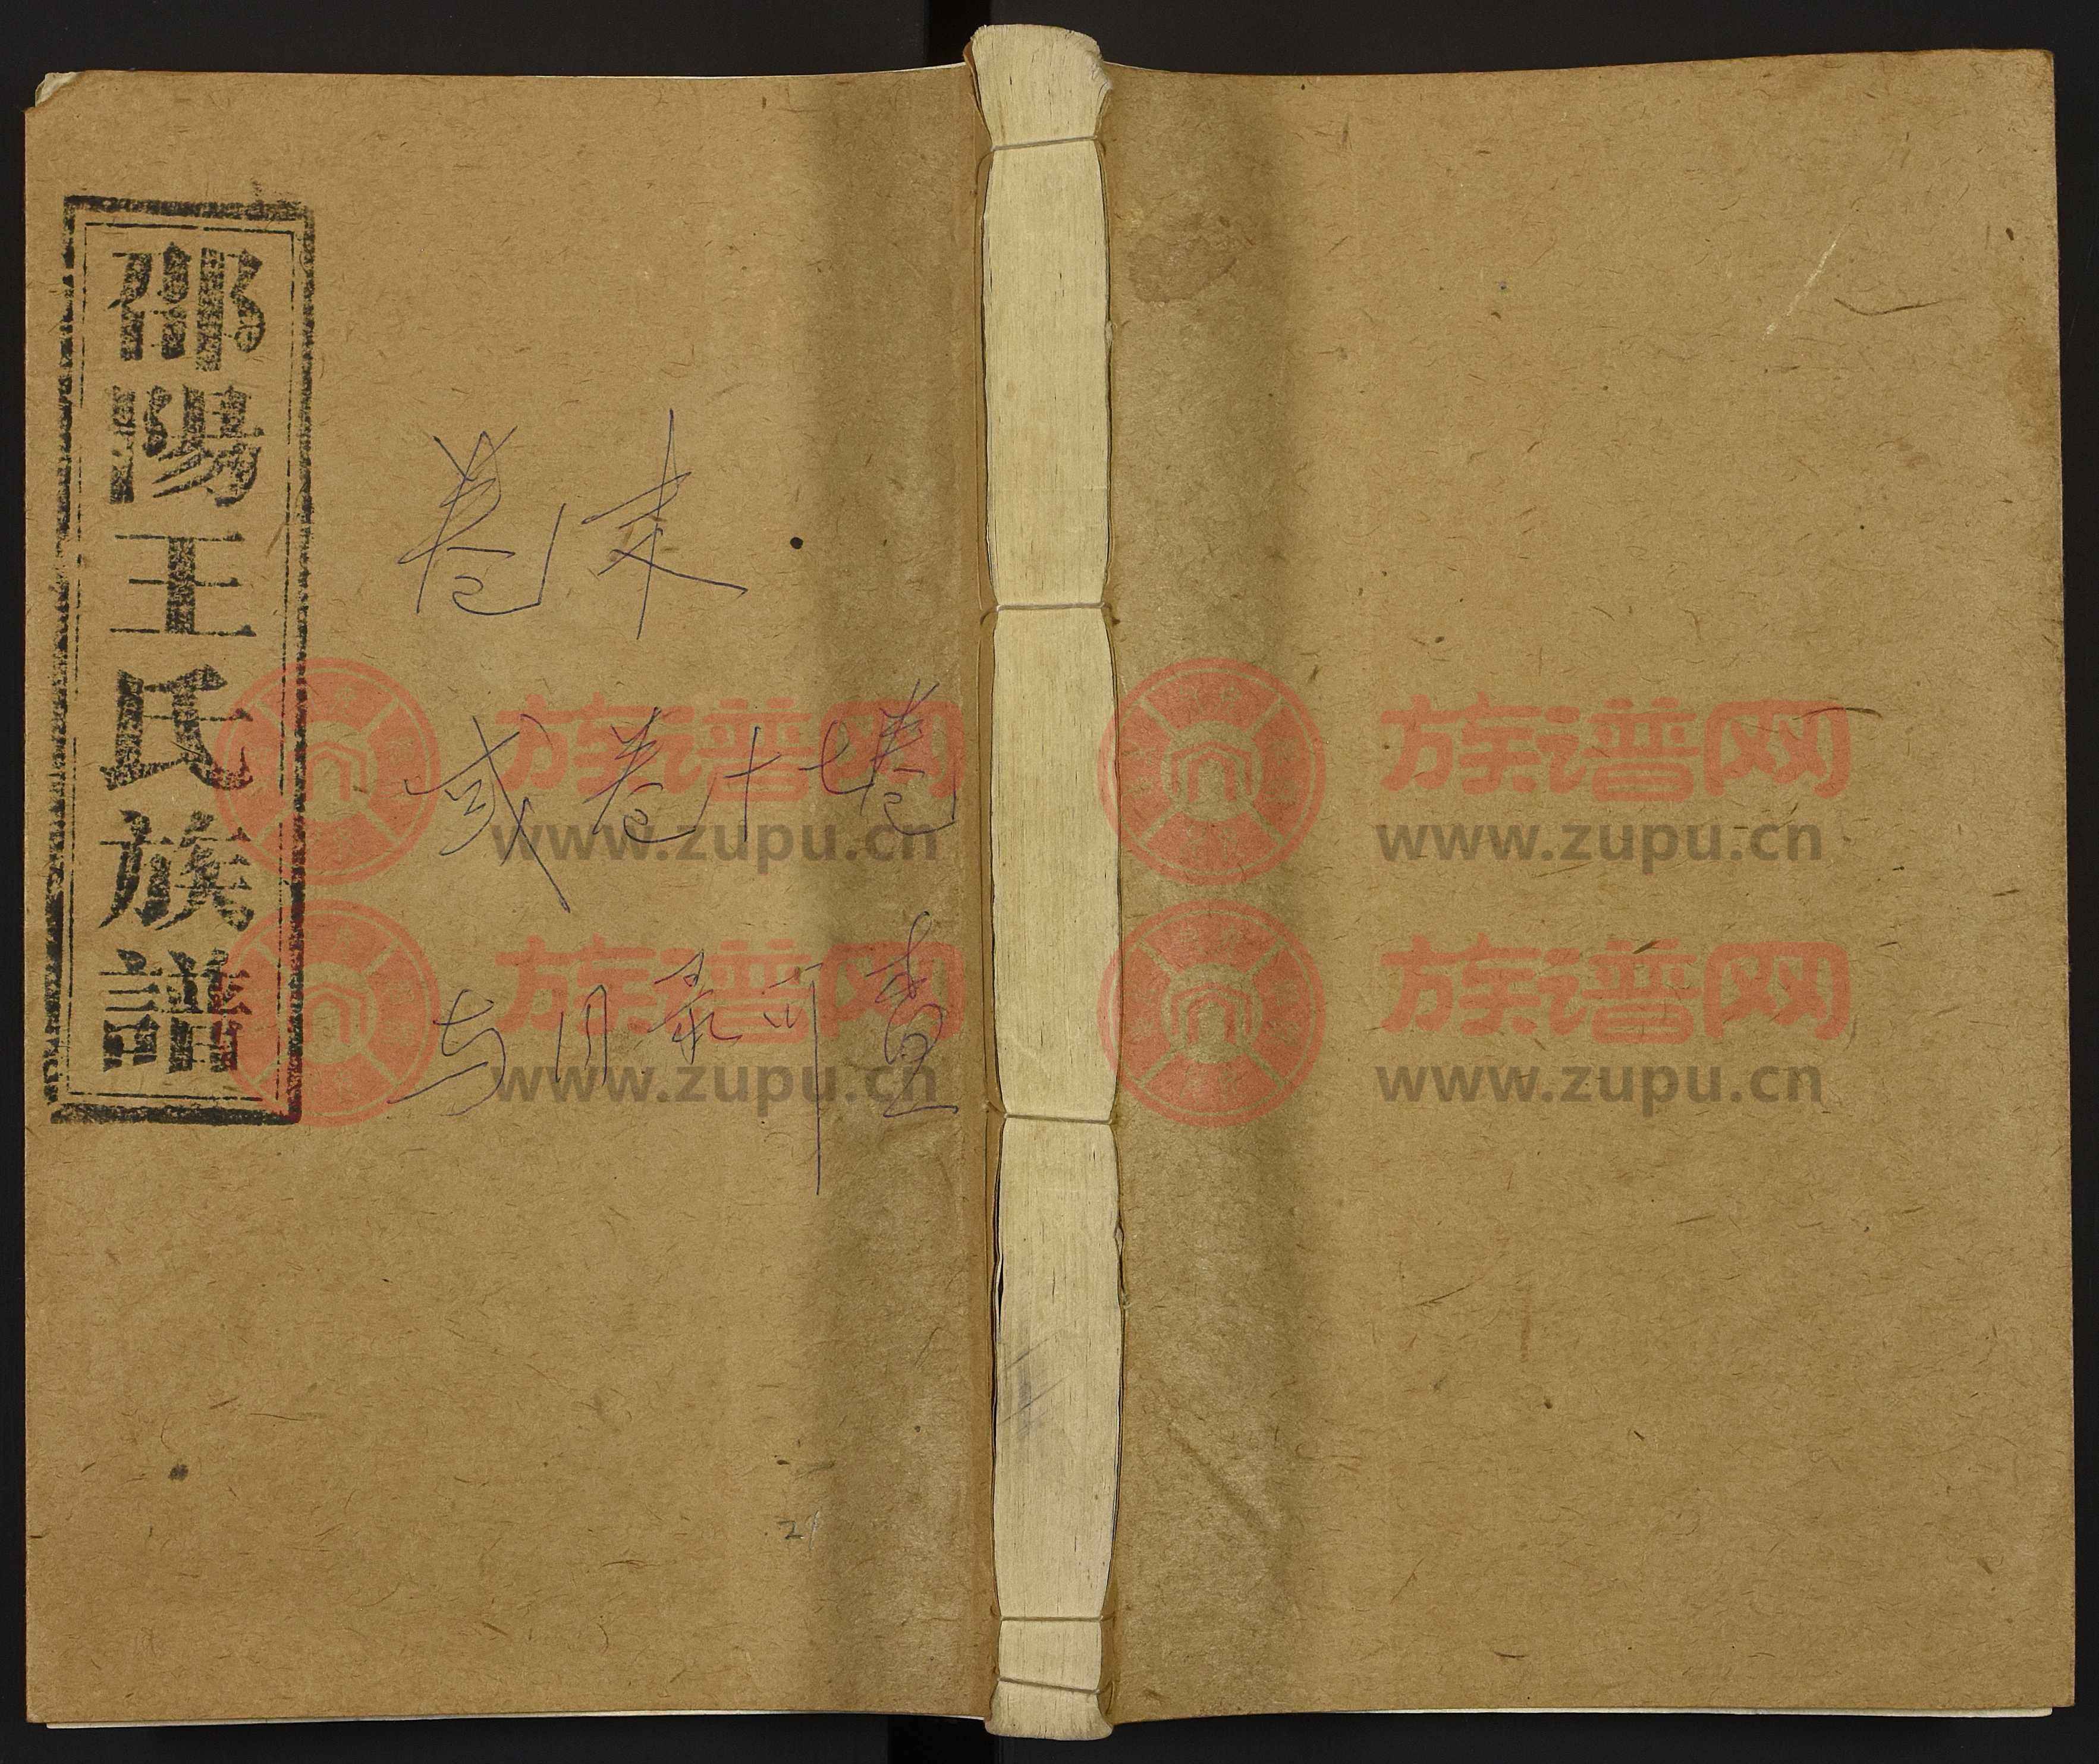 邵陽王氏族譜
卷末
或卷十七卷
与目录可查
族谱网
www.zupu.cn
族谱网
www.zupu.cn
族谱网
www.zupu.cn
族谱网
www.zupu.cn